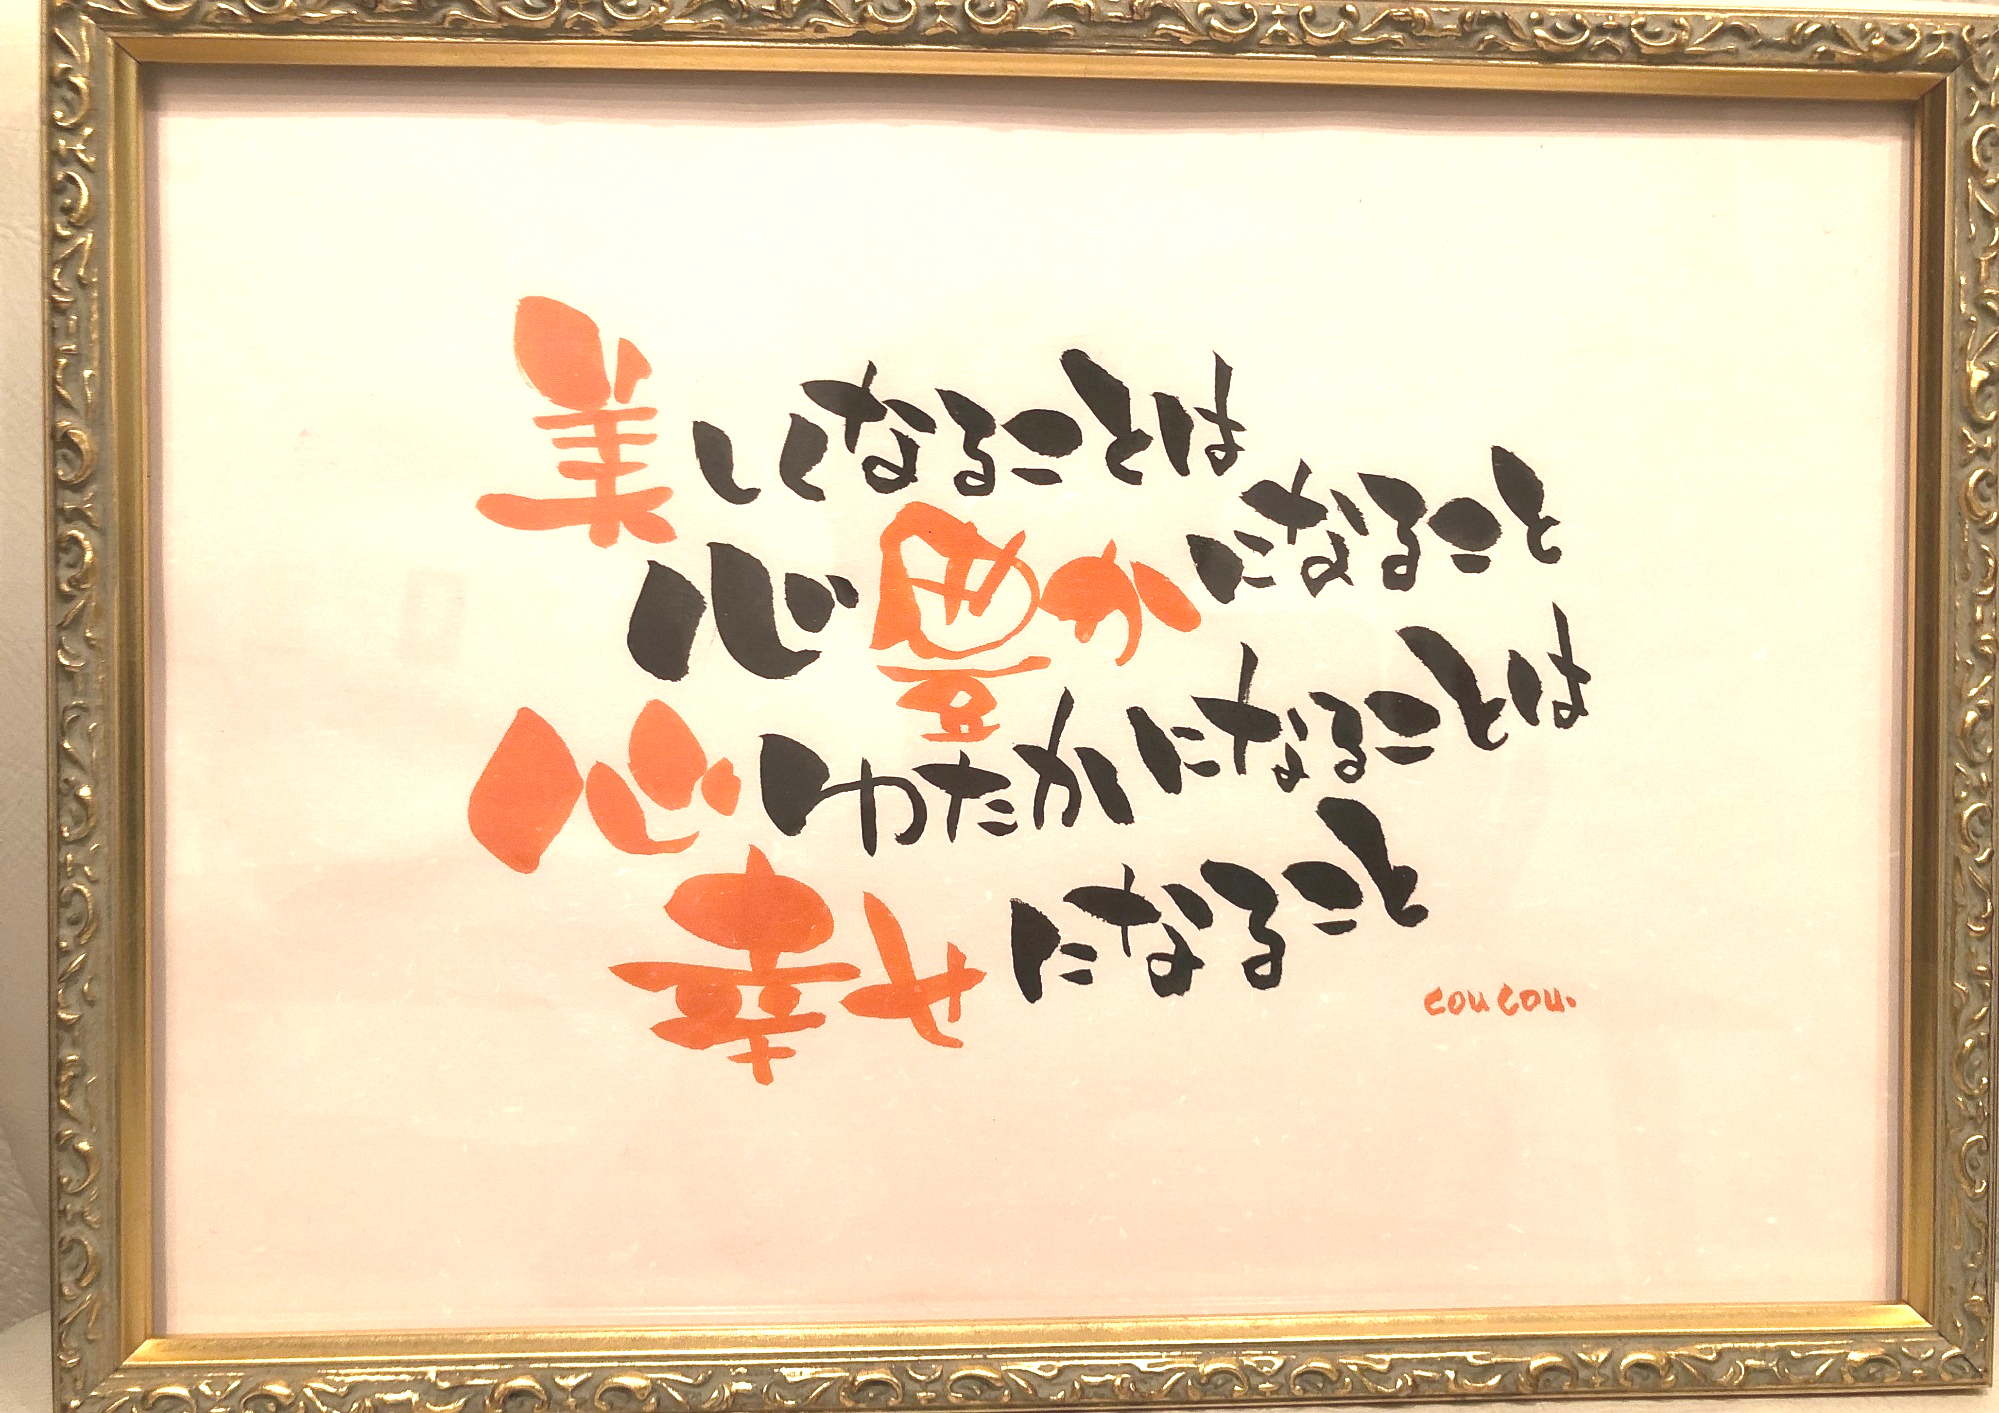 美しくなることは
心豊かになること
心ゆたかになることは
幸せになること
coucou.